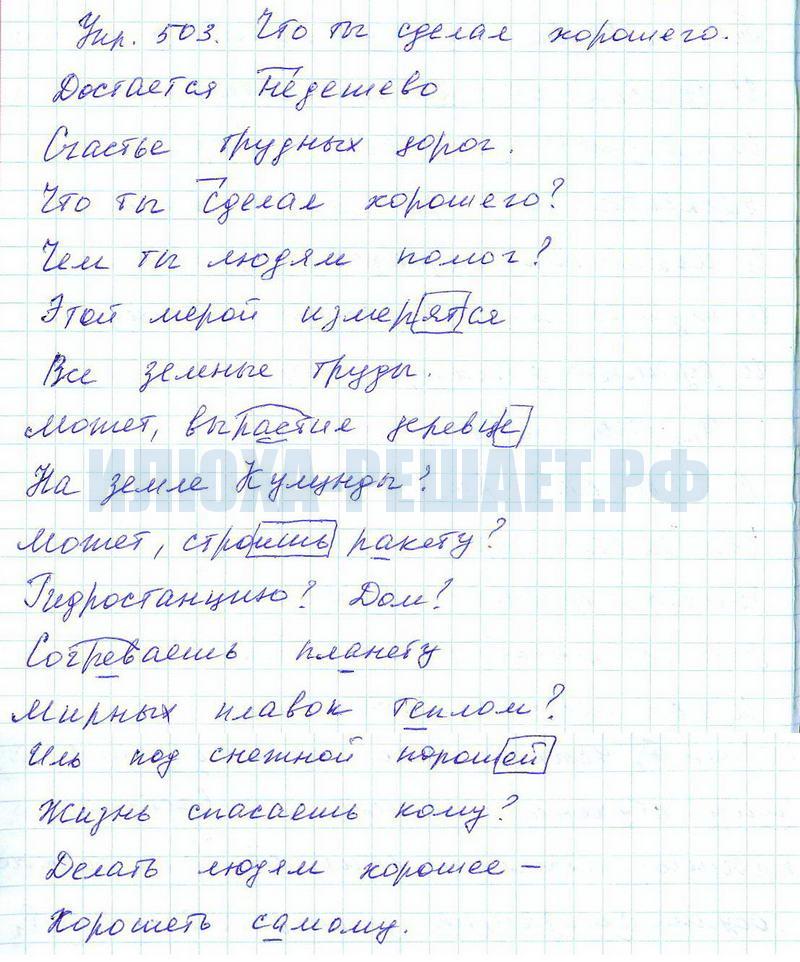 Упр. 503. Что ты сделал хорошего.
Достается недешево
Счастье трудных дорог.
Что ты сделал хорошего?
Чем ты людям помог?
Этой мерой измерятся
Все земные труды.
Может, вырастил деревце
На земле Кулунды?
ИЛЮХА-РЕШАЕТ.РФ
Может, строишь ракету?
Гидростанцию? Дом?
Согреваешь планету
Мирных плавок теплом?
Иль под снежной порошей
Жизнь спасаешь кому?
Делать людям хорошее –
Хорошеть самому.